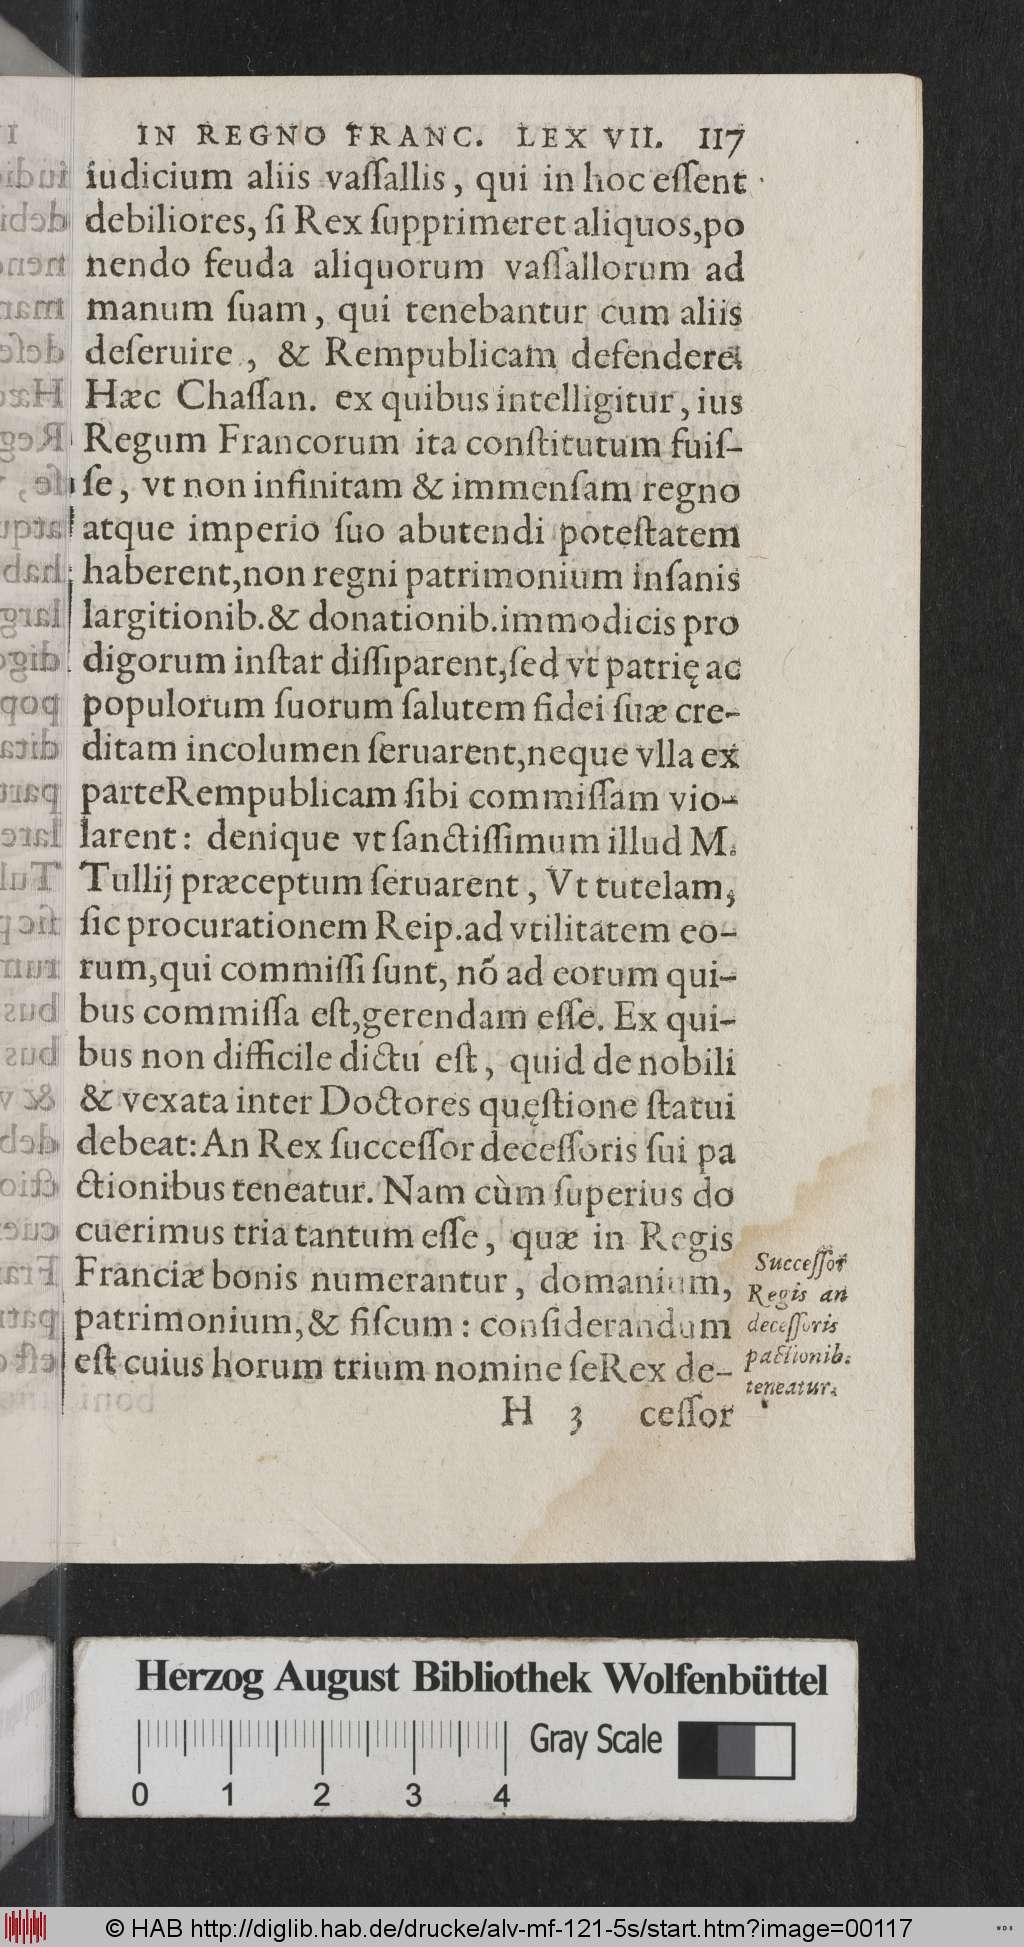 IN REGNO FRANC. LEX VII. 117
iudicium aliis vaſſallis, qui in hoc eſſent
debiliores, ſi Rex ſupprimeret aliquos,po
nendo feuda aliquorum vaſſallorum ad
manum ſuam, qui tenebantur cum aliis
deſeruire, & Rempublicam defendere.
Hæc Chaſſan. ex quibus intelligitur, ius
Regum Francorum ita conſtitutum fuiſ-
ſe, vt non infinitam & immenſam regno
atque imperio ſuo abutendi poteſtatem
haberent,non regni patrimonium inſanis
largitionib.& donationib.immodicis pro
digorum inſtar diſſiparent,ſed vt patrię ac
populorum ſuorum ſalutem fidei ſuæ cre-
ditam incolumen ſeruarent,neque vlla ex
parteRempublicam ſibi commiſſam vio-
larent: denique vt ſanctiſſimum illud M.
Tullij præceptum ſeruarent, Vt tutelam,
ſic procurationem Reip.ad vtilitatem eo-
rum,qui commiſſi ſunt, nõ ad eorum qui-
bus commiſſa eſt,gerendam eſſe. Ex qui-
bus non difficile dictu eſt, quid de nobili
& vexata inter Doctores quęſtione ſtatui
debeat:An Rex ſucceſſor deceſſoris ſui pa
ctionibus teneatur. Nam cùm ſuperius do
cuerimus tria tantum eſſe, quæ in Regis
Franciæ bonis numerantur, domanium,
patrimonium,& fiſcum: conſiderandum
eſt cuius horum trium nomine ſeRex de-
H 3 ceſſor
Succeſſor
Regis an
deceſſoris
pactionib.
teneatur.
Herzog August Bibliothek Wolfenbüttel
Gray Scale
0 1 2 3 4
© HAB http://diglib.hab.de/drucke/alv-mf-121-5s/start.htm?image=00117